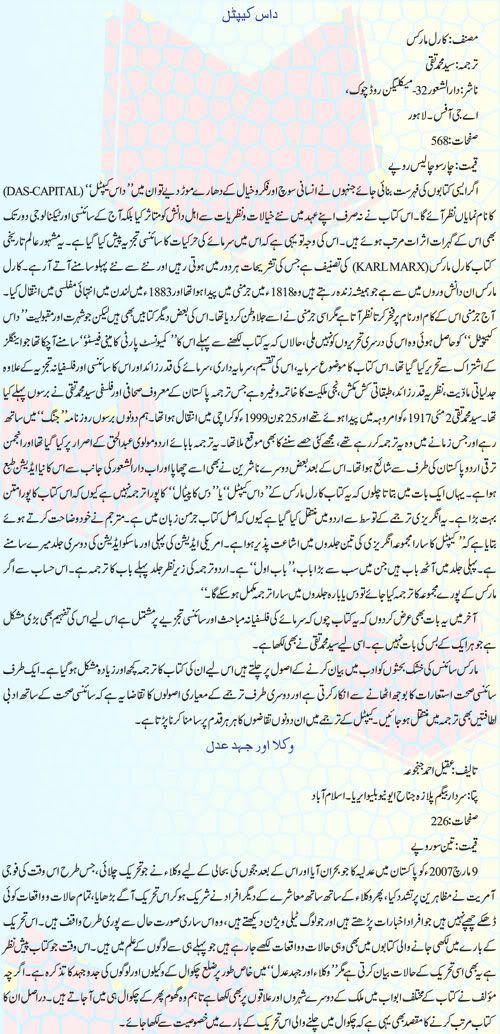 داس کیپٹل
مصنف: کارل مارکس
ترجمہ: سید محمد تقی
ناشر: دارالشعور 32-میکلیگن روڈ چوک،
اے جی آفس۔لاہور
صفحات:568
قیمت: چارسو چالیس روپے
اگر ایسی کتابوں کی فہرست بنائی جائے جنہوں نے انسانی سوچ اور فکر و خیال کے دھارے موڑ دیے تو ان میں ’’داس کیپٹل‘‘ (DAS-CAPITAL)
کا نام نمایاں نظر آئے گا۔ اس کتاب نے نہ صرف اپنے عہد میں نئے خیالات و نظریات سے اہل دانش کو متاثر کیا بلکہ آج کے سائنسی اور ٹیکنالوجی دور تک
بھی اس کے گہرے اثرات مرتب ہوئے ہیں۔ اس کی وجہ تو یہی ہے کہ اس میں سرمائے کی حرکیات کا سائنسی تجزیہ پیش کیا گیا ہے۔ یہ مشہور عالم تاریخی
کتاب کارل مارکس (KARL MARX) کی تصنیف ہے جس کی تشریحات ہر دور میں ہوتی رہیں اور نئے سے نئے پہلو سامنے آتے آ رہے۔ کارل
مارکس ان دانش وروں میں سے ہے جو ہمیشہ زندہ رہتے ہیں وہ 1818ء میں جرمنی میں پیدا ہوا تھا اور 1883ء میں لندن میں انتہائی مفلسی میں انتقال کیا۔
آج جرمنی اس کے کام اور نام پر فخر کرتا نظر آتا ہے مگر اسی جرمنی نے اسے جلاوطن کر دیا تھا۔ اس کی بعض دیگر کتابیں بھی ہیں لیکن جو شہرت اور مقبولیت ’’داس
کیپیٹل‘‘ کو حاصل ہوئی وہ اس کی دوسری تحریروں کو نہیں ملی، حالاں کہ یہ کتاب لکھنے سے پہلے اس کا ’’کمیونسٹ پارٹی کا مینی فیسٹو‘‘ سامنے آ چکا تھا جو اینگلز
کے اشتراک سے تحریر کیا گیا تھا۔ اس کتاب کا موضوع سرمایہ، اس کی تقسیم، سرمایہ داری، سرمائے کی قدر زائد اور اس کا سائنسی اور فلسفیانہ تجزیہ کے علاوہ
جدلیاتی مادیت، نظریہ قدر زائد، طبقاتی کش مکش، نجی ملکیت کا خاتمہ وغیرہ ہے جس ترجمہ پاکستان کے معروف صحافی اور فلسفی سید محمد تقی نے برسوں پہلے کیا
تھا۔ سید محمد تقی 2 مئی 1917ء کو امروہہ میں پیدا ہوئے تھے اور 25 جون 1999ء کو کراچی میں انتقال ہوا تھا۔ ہم دونوں برسوں روزنامہ ’’جنگ‘‘ میں ساتھ
رہے اور جس زمانے میں وہ یہ ترجمہ کر رہے تھے، مجھے کئی حصے سننے کا بھی موقع ملا تھا۔ یہ ترجمہ بابائے اردو مولوی عبدالحق کے اصرار پر کیا گیا تھا اور انجمن
ترقی اردو پاکستان کی طرف سے شائع ہوا تھا۔ اس کے بعد بعض دوسرے ناشرین نے بھی اسے چھاپا اور اب دارالشعور کی جانب سے اس کا نیا ایڈیشن طبع
ہوا ہے۔ یہاں ایک بات میں بتاتا چلوں کہ یہ کتاب کارل مارکس کے ’’داس کیپٹل‘‘ یا ’’دس کاپیٹال‘‘ کا پورا ترجمہ نہیں ہے کیوں کہ اس کتاب کا پورا متن
بہت بڑا ہے۔ یہ انگریزی ترجمے کے توسط سے اردو میں منتقل کیا گیا ہے کیوں کہ اصل کتاب جرمن زبان میں ہے۔ مترجم نے خود وضاحت کرتے ہوئے
بتایا ہے کہ ’’کیپٹل کا سارا مجموعہ انگریزی کی تین جلدوں میں اشاعت پذیر ہوا ہے۔ امریکی ایڈیشن کی پہلی اور ماسکو ایڈیشن کی دوسری جلد میرے سامنے
ہے۔ پہلی جلد میں آٹھ باب ہیں جن میں سب سے بڑا باب، ’’باب اول‘‘ ہے۔ اردو ترجمہ کی زیر نظر جلد پہلے باب کا ترجمہ ہے۔ اس حساب سے اگر
مارکس کے پورے مجموعہ کا ترجمہ کیا جائے تو دس یا بارہ جلدوں میں سارا ترجمہ مکمل ہو سکے گا۔‘‘
آخر میں یہ بات بھی عرض کر دوں کہ یہ کتاب چوں کہ سرمائے کی فلسفیانہ مباحث اور سائنسی تجزیے پر مشتمل ہے اس لیے اس کی تفہیم بھی بڑی مشکل
ہے جو ہر ایک کے بس کی بات نہیں ہے۔ اسی لیے سید محمد تقی نے بھی لکھا ہے۔
مارکس سائنس کی خشک بحثوں کو ادب میں بیان کرنے کے اصول پر چلتے ہیں اس لیے ان کی کتاب کا ترجمہ کچھ اور زیادہ مشکل ہو گیا ہے۔ ایک طرف
سائنسی صحت استعارات کا بوجھ اٹھانے سے انکار کرتی ہے اور دوسری طرف ترجمے کے معیاری اصولوں کا تقاضا یہ ہے کہ سائنسی صحت کے ساتھ ادبی
لطافتیں بھی ترجمہ میں منتقل ہو جائیں۔ کیپٹل کے ترجمے میں ان دونوں تقاضوں کا ہر ہر قدم پر سامنا کرنا پڑتا ہے۔
وکلا اور جہد عدل
تالیف: عقیل احمد جنجوعہ
پتا: سردار بیگم پلازہ جناح ایونیو بلیو ایریا۔ اسلام آباد
صفحات:226
قیمت: تین سو روپے
9 مارچ 2007ء کو پاکستان میں عدلیہ کا جو بحران آیا اور اس کے بعد ججوں کی بحالی کے لیے وکلاء نے جو تحریک چلائی، جس طرح اس وقت کی فوجی
آمریت نے مظاہرین پر تشدد کیا، پھر وکلاء کے ساتھ ساتھ معاشرے کے دیگر افراد نے شریک ہو کر اس تحریک آگے بڑھایا، تمام حالات و واقعات کوئی
ڈھکے چھپے نہیں ہیں جو افراد اخبارات پڑھتے ہیں اور جو لوگ ٹیلی ویژن دیکھتے ہیں، وہ اس ساری صورت حال سے پوری طرح واقف ہیں۔ اس تحریک
کے بارے میں لکھی جانے والی کتابوں میں بھی وہی حالات و واقعات لکھے جا رہے ہیں جو پہلے ہی سے لوگوں کے علم میں ہیں۔ اس وقت جو کتاب پیش نظر
ہے یہ بھی اسی تحریک کے حالات بیان کرتی ہے مگر ’’وکلاء اور جہد عدل‘‘ میں خاص طور پر ضلع چکوال کے وکیلوں اور لوگوں کی جدوجہد کا تذکرہ ہے۔ اگرچہ
مؤلف نے کتاب کے مختلف ابواب میں ملک کے دوسرے شہروں اور علاقوں پر بھی لکھا ہے تاہم وہ گھوم پھر کے چکوال ہی میں آ جاتے ہیں۔ دراصل ان کا
کتاب مرتب کرنے کا مقصد بھی یہی ہے کہ چکوال میں چلنے والی اس تحریک کے بارے میں خصوصیت سے لکھا جائے۔